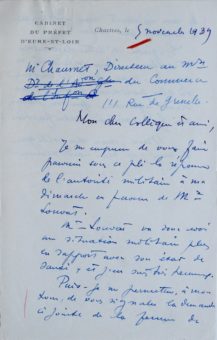 CABINET
DU PRÉFET
D'EURE-ET-LOIR
Chartres, le 5 novembre 1939
Mr Chaumet, Directeur au Mre
du Commerce
111 Rue de Grenelle
Mon cher Collègue et ami,
Je m'empresse de vous faire
parvenir sous ce pli la réponse
de l'autorité militaire à ma
démarche en faveur de Mr
Louvais.
Mr Louvais va donc avoir
une situation militaire plus
en rapport avec son état de
santé, et j'en suis très heureux.
Puis-je me permettre, à mon
tour, de vous signaler la demande
ci jointe de la femme de